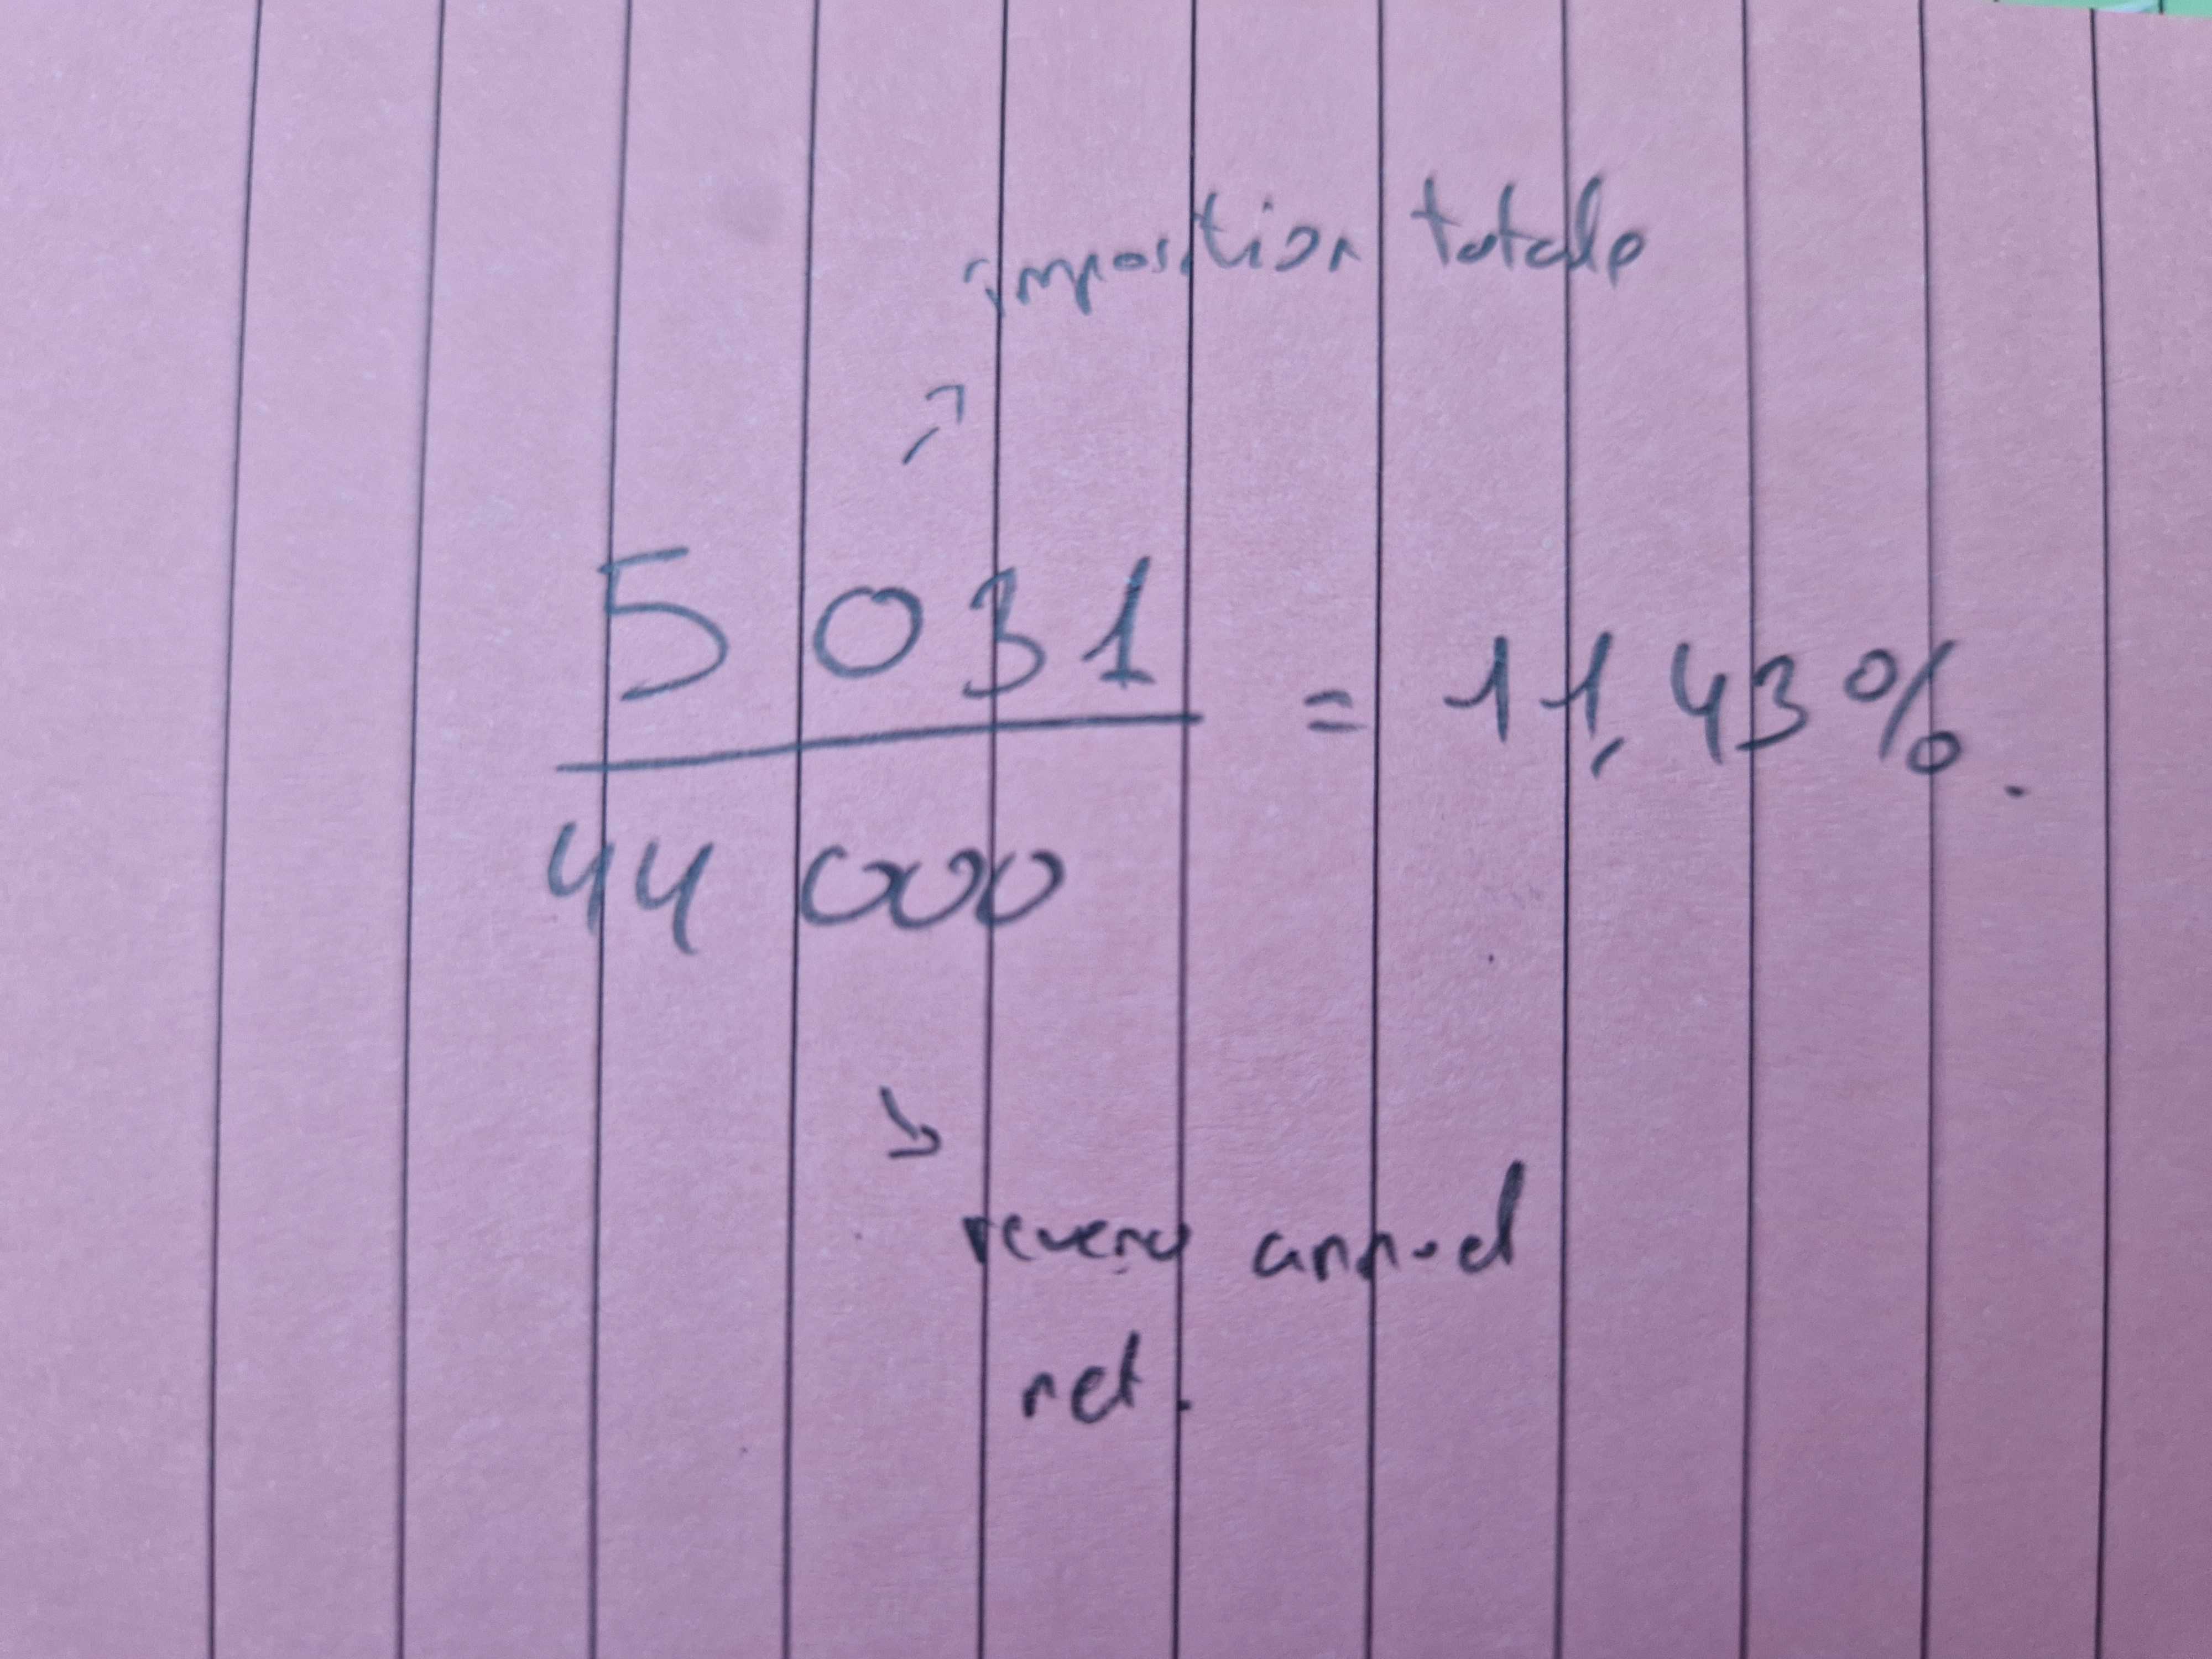 imposition totale
↗
5 031
= 11,43 %.
44 000
↘
revenu annuel
net.